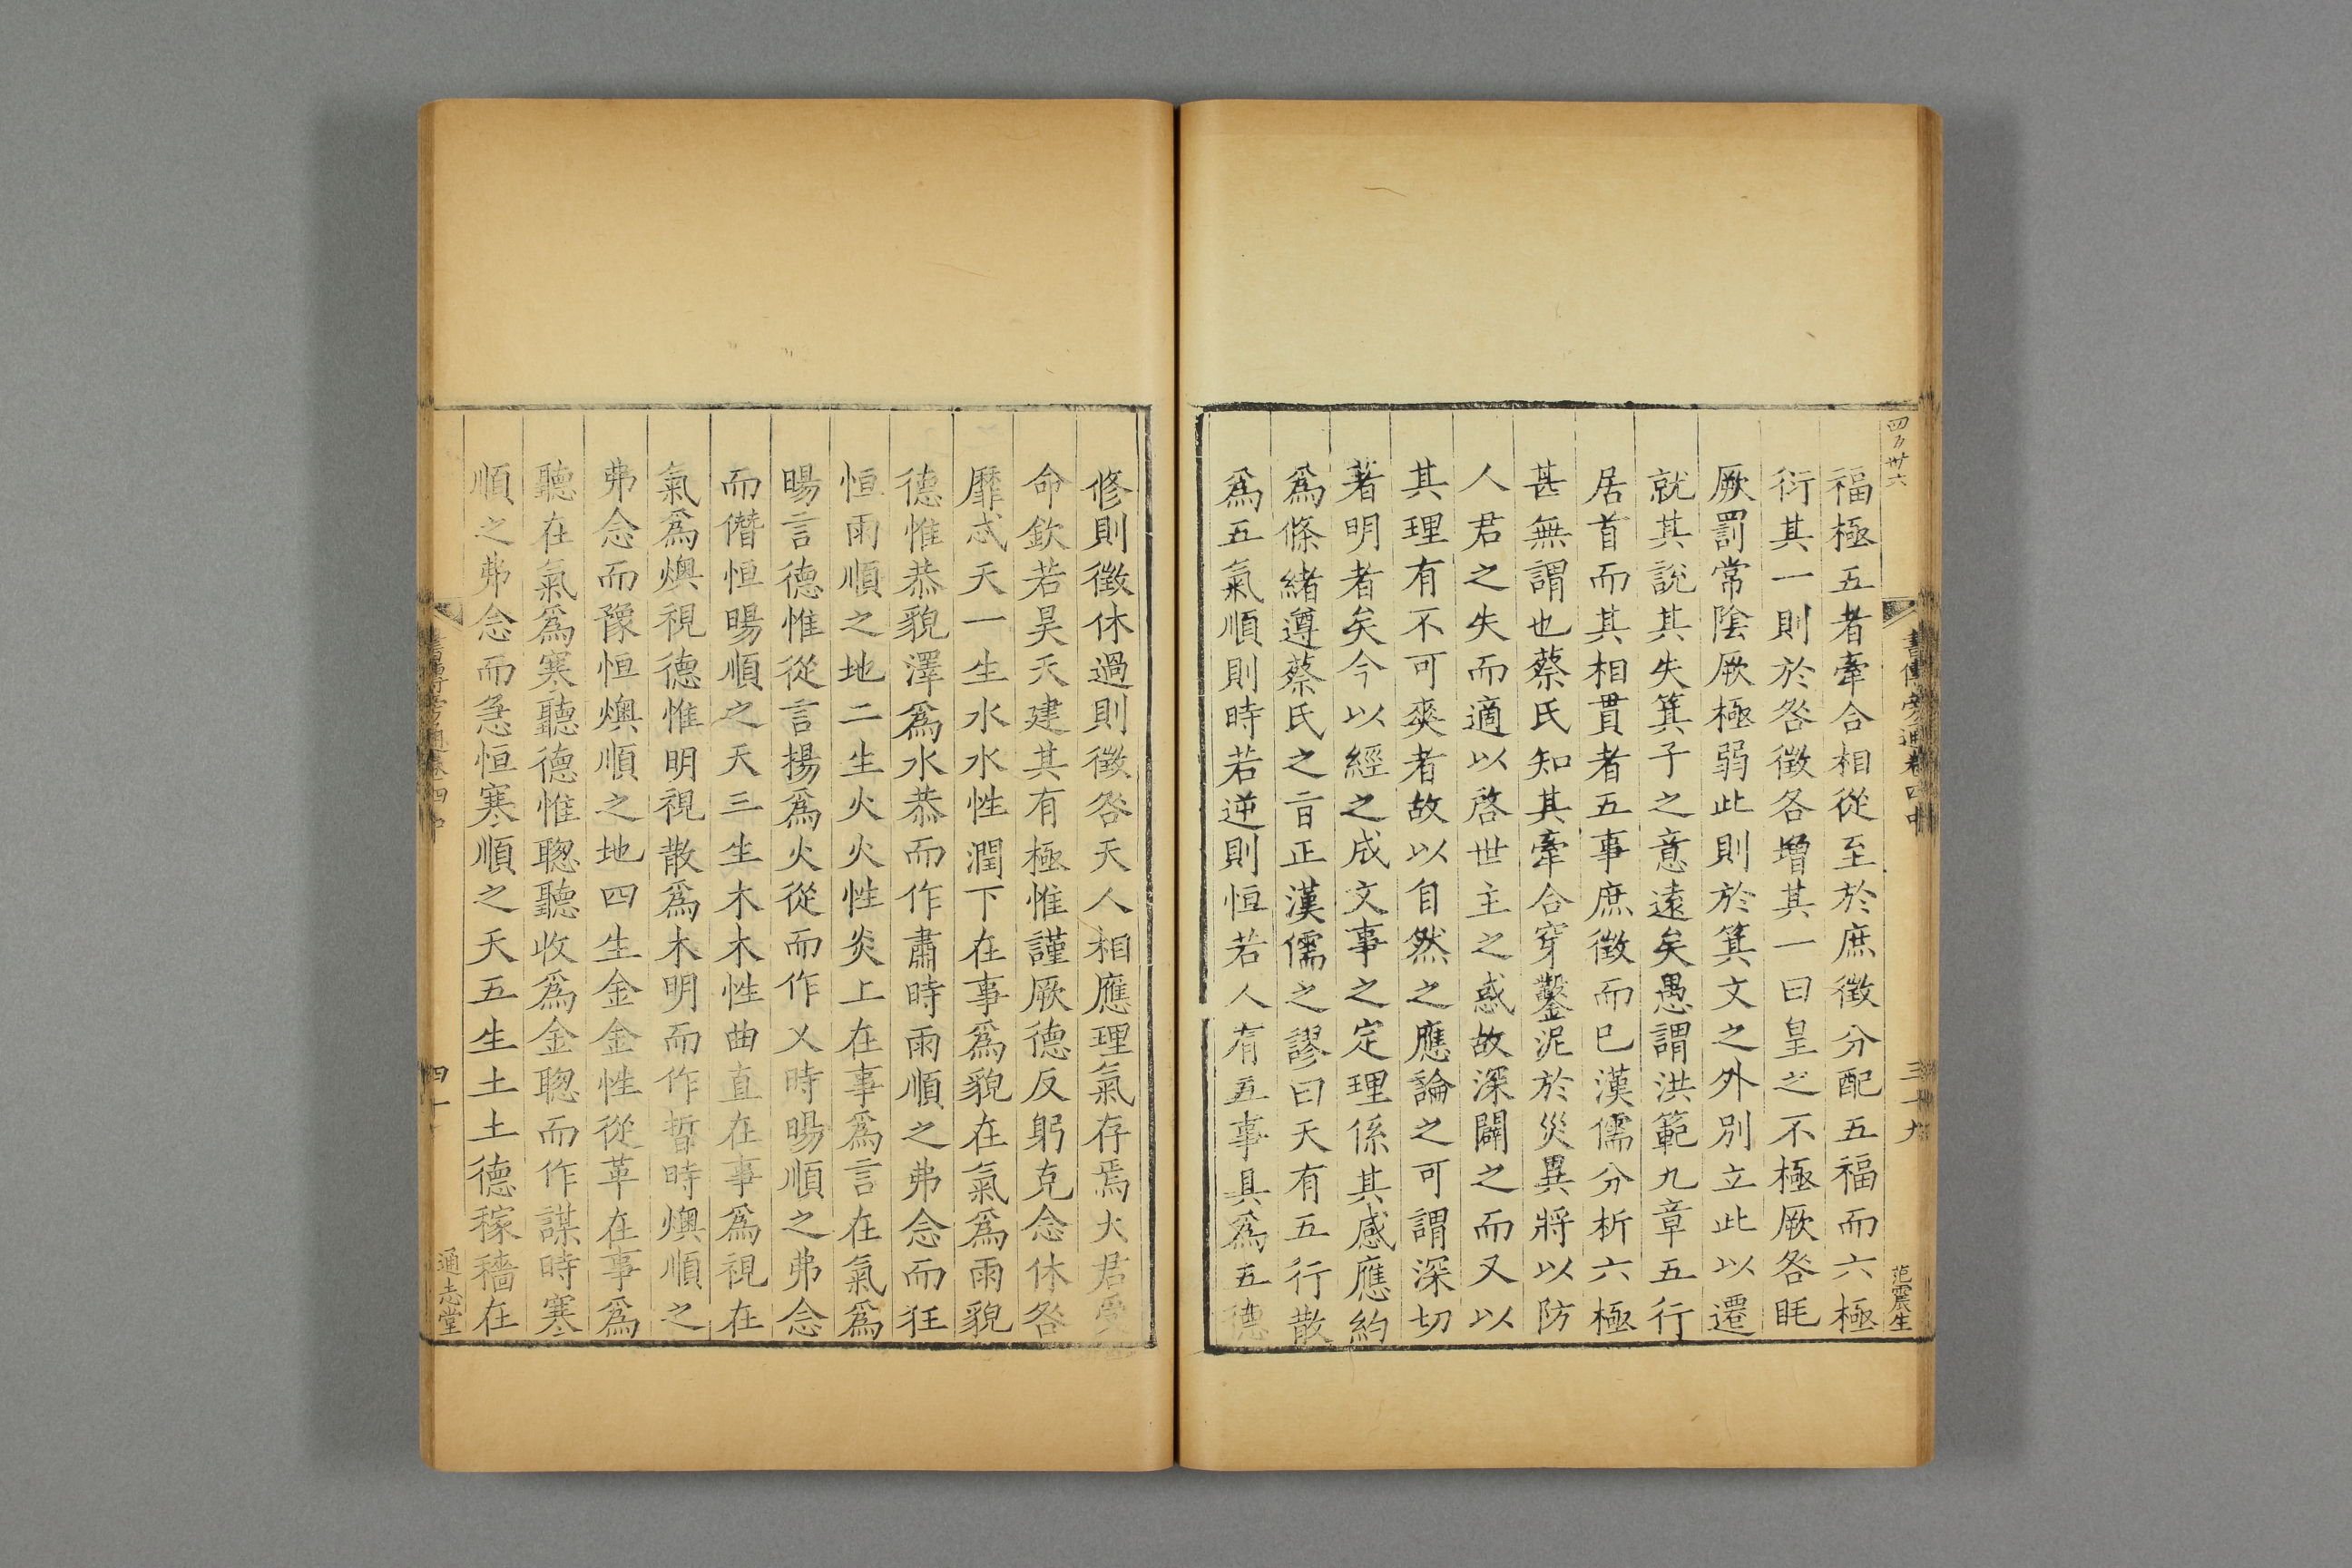 四百卅六
書傳旁通卷四中
三十九
范震生
福極五者牽合相從至於庶徵分配五福而六極
衍其一則於咎徵各增其一曰皇之不極厥咎眊
厥罰常陰厥極弱此則於箕文之外別立此以遷
就其說其失箕子之意遠矣愚謂洪範九章五行
居首而其相貫者五事庶徵而已漢儒分析六極
甚無謂也蔡氏知其牽合穿鑿泥於災異將以防
人君之失而適以啓世主之惑故深闢之而又以
其理有不可爽者故以自然之應論之可謂深切
著明者矣今以經之成文事之定理係其感應約
爲條緒遵蔡氏之旨正漢儒之謬曰天有五行散
爲五氣順則時若逆則恒若人有五事具爲五德
修則徵休過則徵咎天人相應理氣存焉大君受
命欽若昊天建其有極惟謹厥德反躬克念休咎
靡忒天一生水水性潤下在事爲貌在氣爲雨貌
德惟恭貌澤爲水恭而作肅時雨順之弗念而狂
恒雨順之地二生火火性炎上在事爲言在氣爲
暘言德惟從言揚爲火從而作乂時暘順之弗念
而僭恒暘順之天三生木木性曲直在事爲視在
氣爲燠視德惟明視散爲木明而作晢時燠順之
弗念而豫恒燠順之地四生金金性從革在事爲
聽在氣爲寒聽德惟聰聽收爲金聰而作謀時寒
順之弗念而急恒寒順之天五生土土德稼穡在
書傳旁通卷四中
四十
通志堂